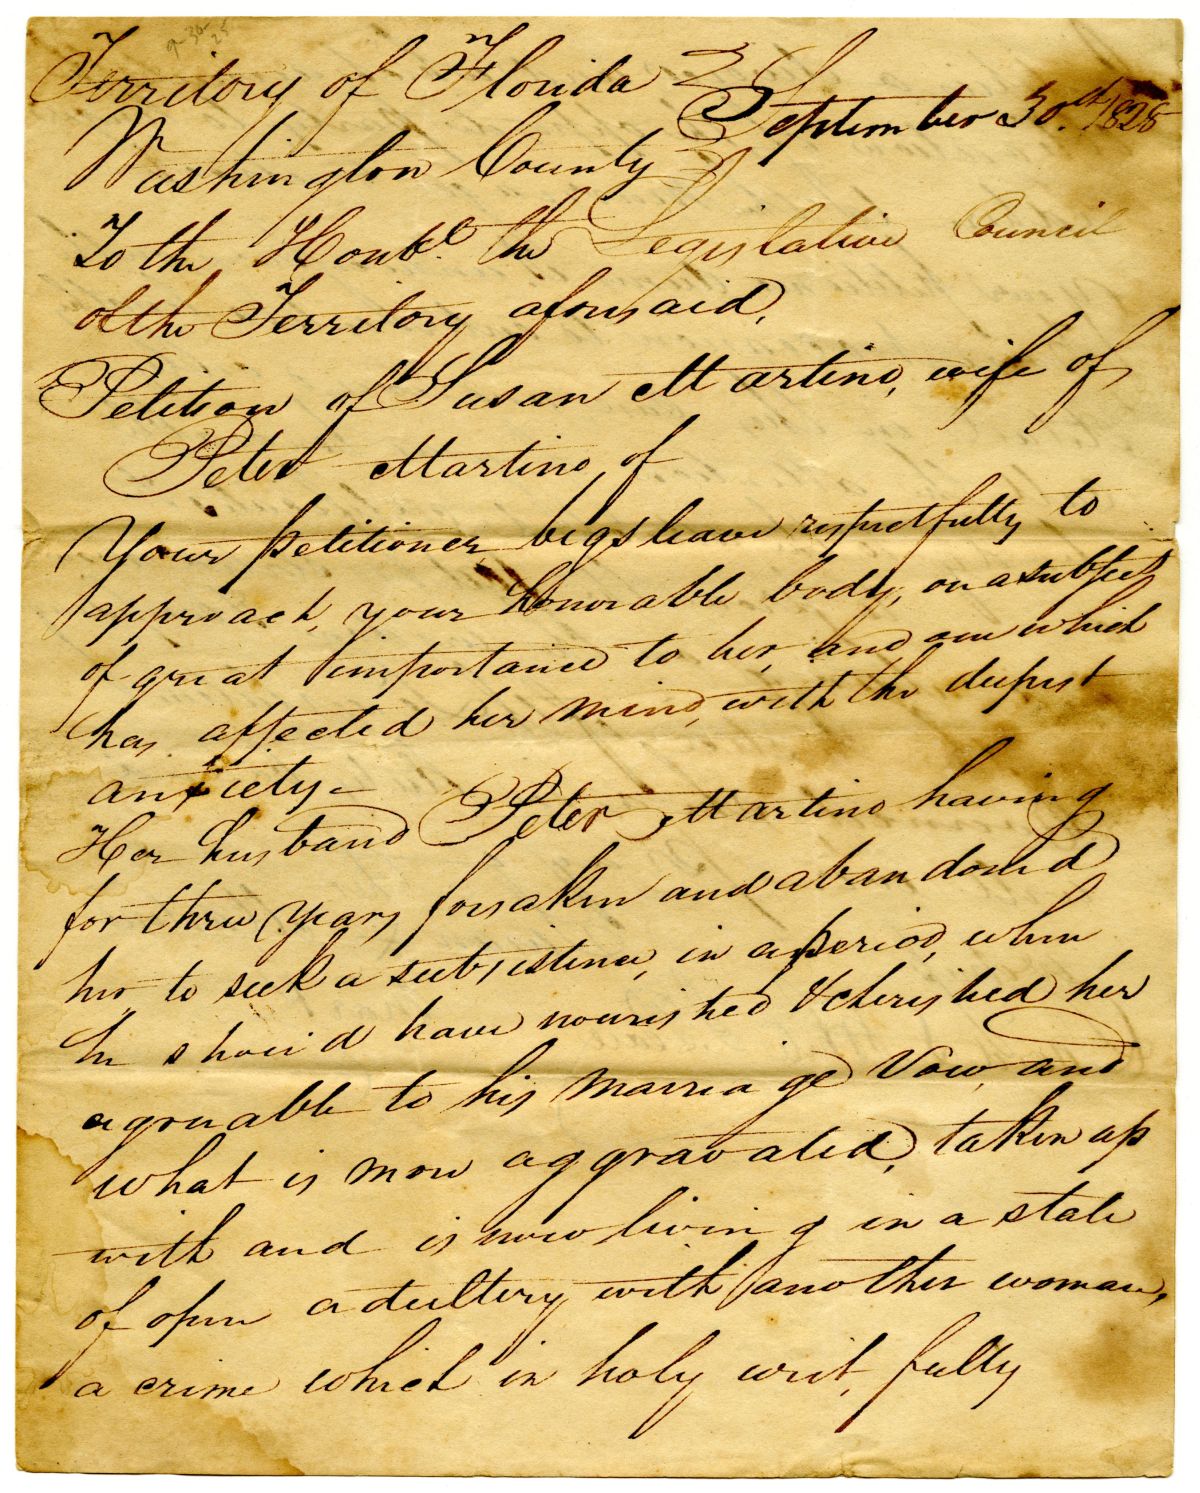 9-30-25
Territory of Florida
September 30th, 1828
Washington County
To the Honble. the Legislative Council
of the Territory aforesaid,
Petition of Susan Martino, wife of
Peter Martino, of
Your petitioner begs leave respectfully to
approach, your honorable body, on a subject
of great importance to her, and one which
has affected her mind, with the deepest
anxiety-
Her husband Peter Martino having
for three years forsaken and abandoned
her, to seek a subsistence, in a period, when
he shou'd have nourished & cherished her
agreeable to his marriage Vow, and
what is more aggravated, taken up
with and is now living in a state
of open adultery with another woman,
a crime which in holy writ, fully